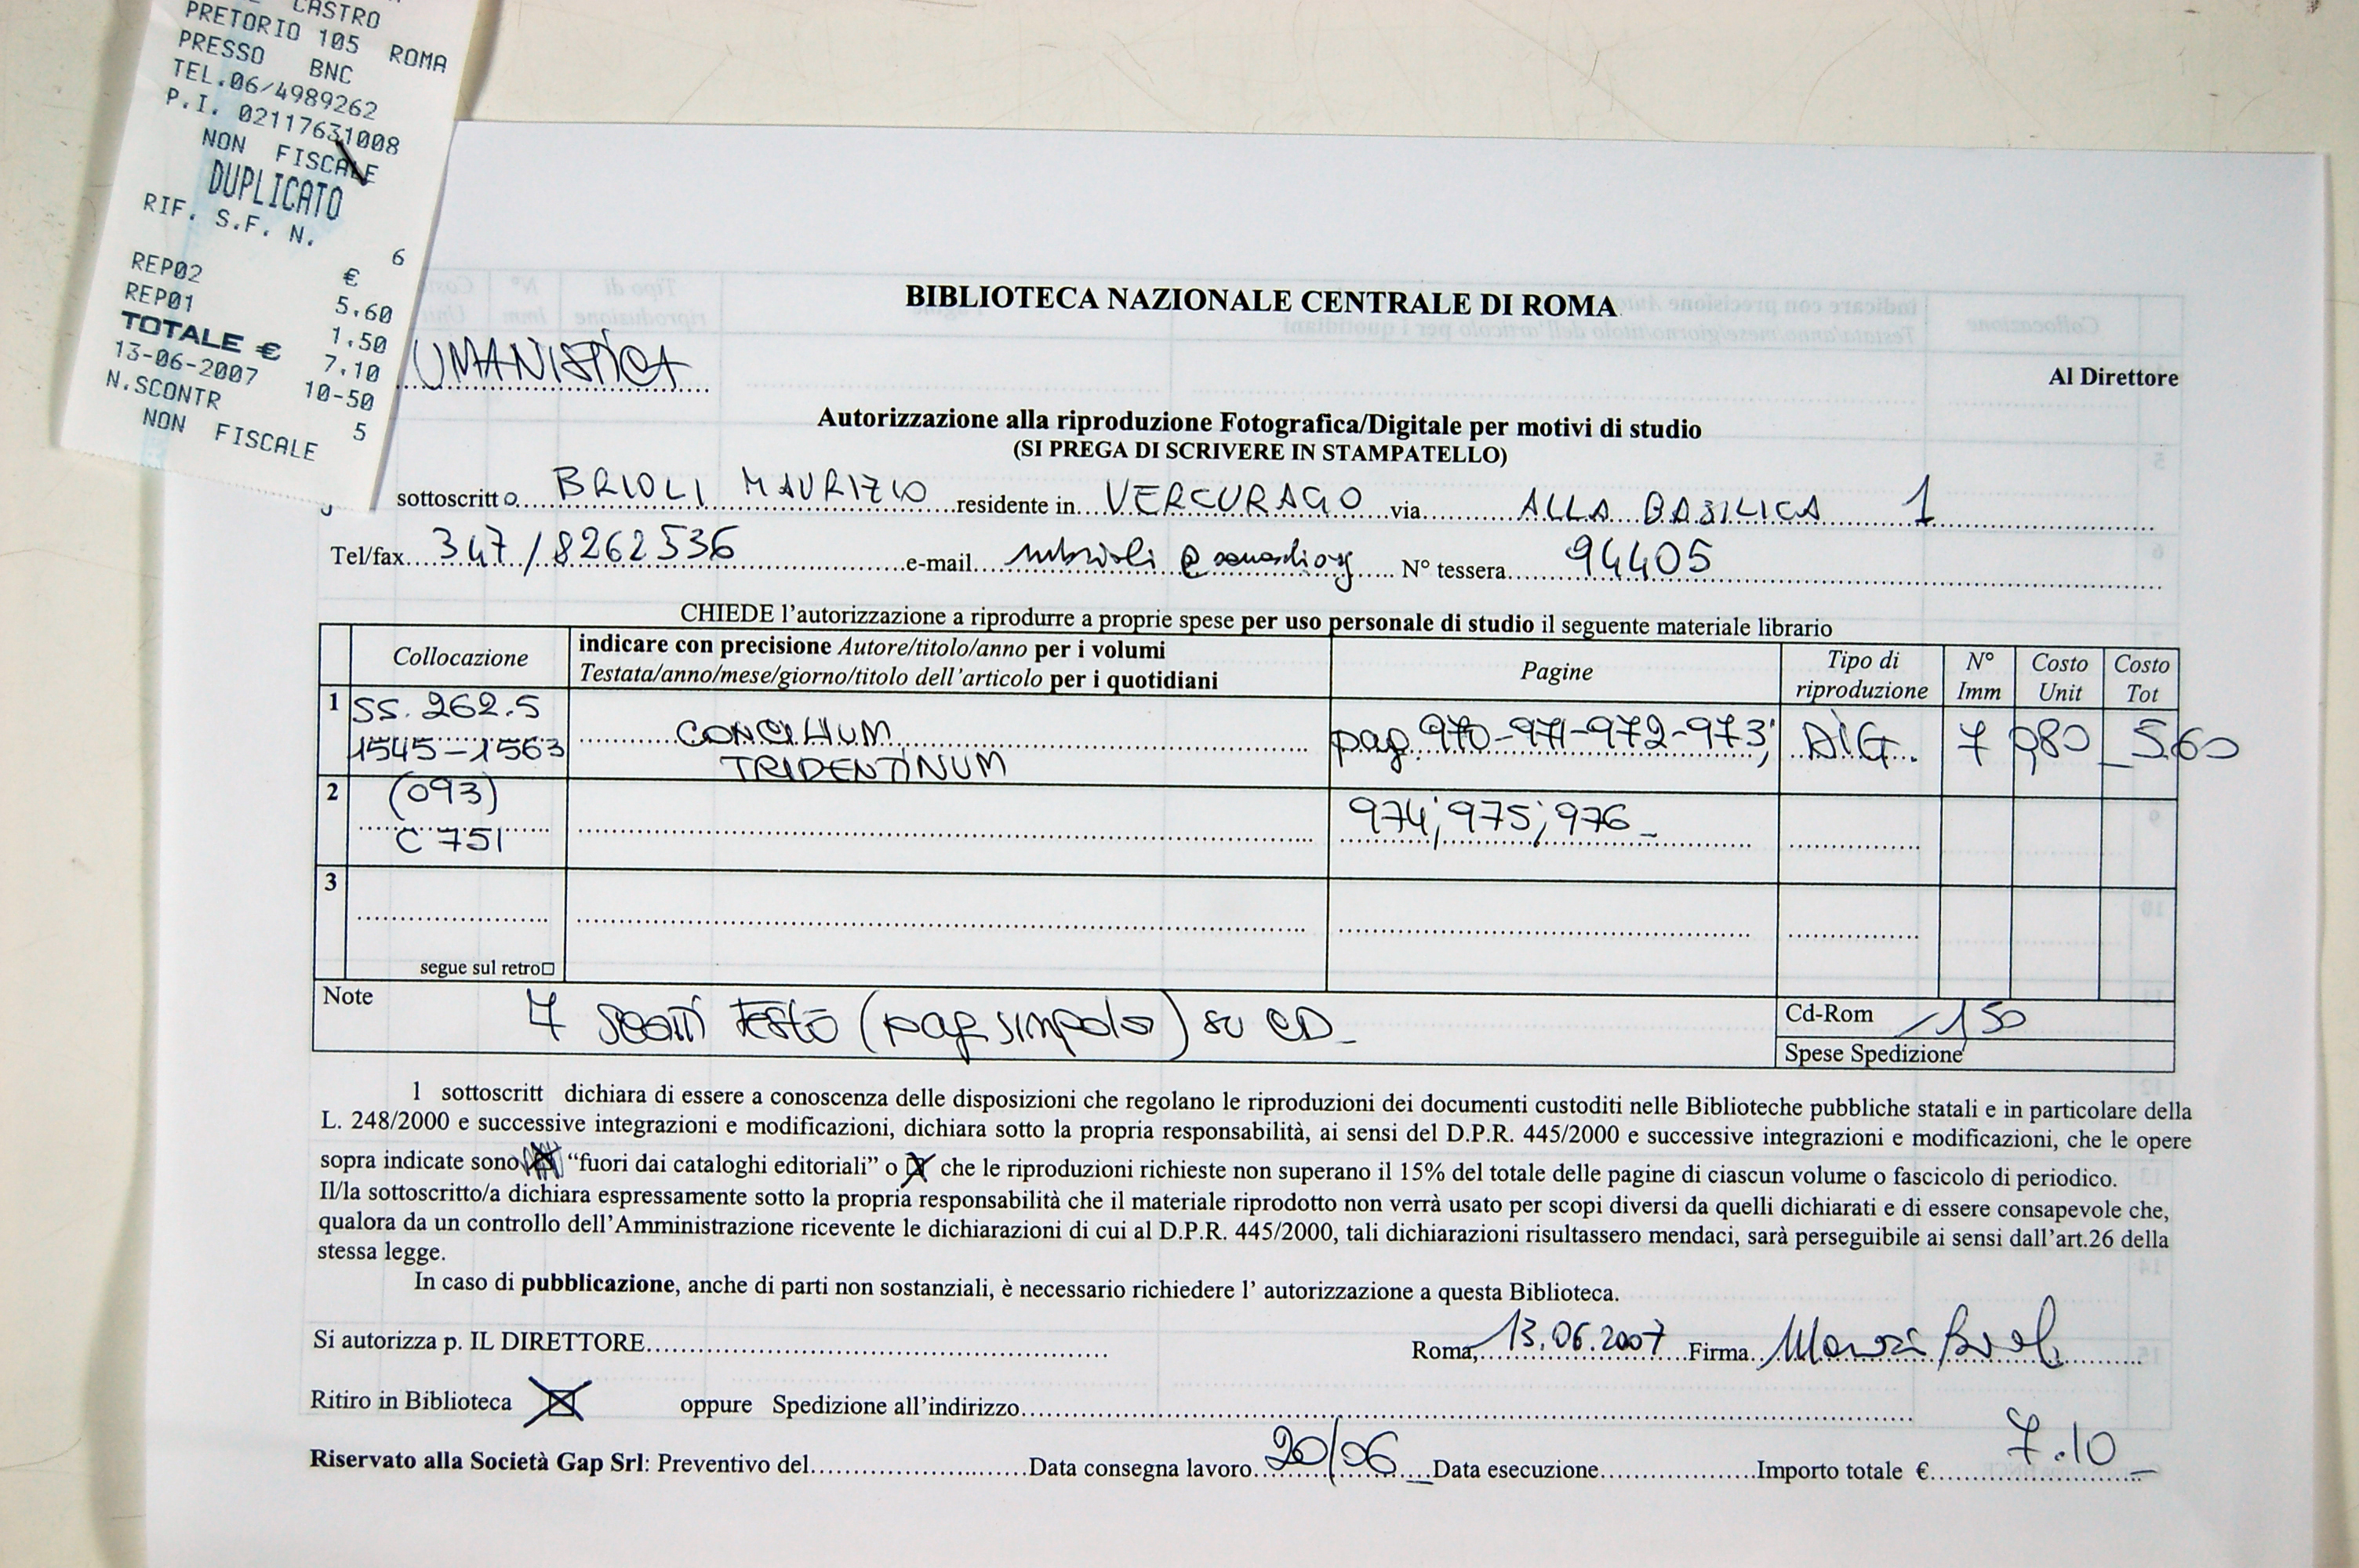 CASTRO
PRETORIO 105 ROMA
PRESSO BNC
TEL.06/4989262
P.I. 02117631008
NON FISCALE
DUPLICATO
RIF. S.F. N. 6
€
REP02 5,60
REP01 1,50
TOTALE € 7,10
13-06-2007 10-50
N.SCONTR 5
NON FISCALE
BIBLIOTECA NAZIONALE CENTRALE DI ROMA
UMANISTICA
Al Direttore
Autorizzazione alla riproduzione Fotografica/Digitale per motivi di studio
(SI PREGA DI SCRIVERE IN STAMPATELLO)
sottoscritto BRIOLI MAURIZIO residente in VERCURAGO via ALLA BASILICA 1
Tel/fax 347/8262536 e-mail N° tessera 94405
CHIEDE l'autorizzazione a riprodurre a proprie spese per uso personale di studio il seguente materiale librario
Collocazione indicare con precisione Autore/titolo/anno per i volumi Testata/anno/mese/giorno/titolo dell'articolo per i quotidiani Pagine Tipo di riproduzione N° Imm Costo Unit Costo Tot
1 SS. 262.5 1545-1563 CONCILIUM TRIDENTINUM pag. 970-971-972-973; DIG. 7 0,80 5,60
2 (093) C 751 974; 975; 976
3
segue sul retro
Note 7 scatti testo (pag. singola) su CD
Cd-Rom 1,50
Spese Spedizione
l sottoscritt dichiara di essere a conoscenza delle disposizioni che regolano le riproduzioni dei documenti custoditi nelle Biblioteche pubbliche statali e in particolare della
L. 248/2000 e successive integrazioni e modificazioni, dichiara sotto la propria responsabilità, ai sensi del D.P.R. 445/2000 e successive integrazioni e modificazioni, che le opere
sopra indicate sono "fuori dai cataloghi editoriali" o che le riproduzioni richieste non superano il 15% del totale delle pagine di ciascun volume o fascicolo di periodico.
Il/la sottoscritto/a dichiara espressamente sotto la propria responsabilità che il materiale riprodotto non verrà usato per scopi diversi da quelli dichiarati e di essere consapevole che,
qualora da un controllo dell'Amministrazione ricevente le dichiarazioni di cui al D.P.R. 445/2000, tali dichiarazioni risultassero mendaci, sarà perseguibile ai sensi dall'art.26 della
stessa legge.
In caso di pubblicazione, anche di parti non sostanziali, è necessario richiedere l' autorizzazione a questa Biblioteca.
Si autorizza p. IL DIRETTORE Roma, 13.06.2007 Firma
Ritiro in Biblioteca oppure Spedizione all'indirizzo
Riservato alla Società Gap Srl: Preventivo del Data consegna lavoro 20/06 Data esecuzione Importo totale € 7.10